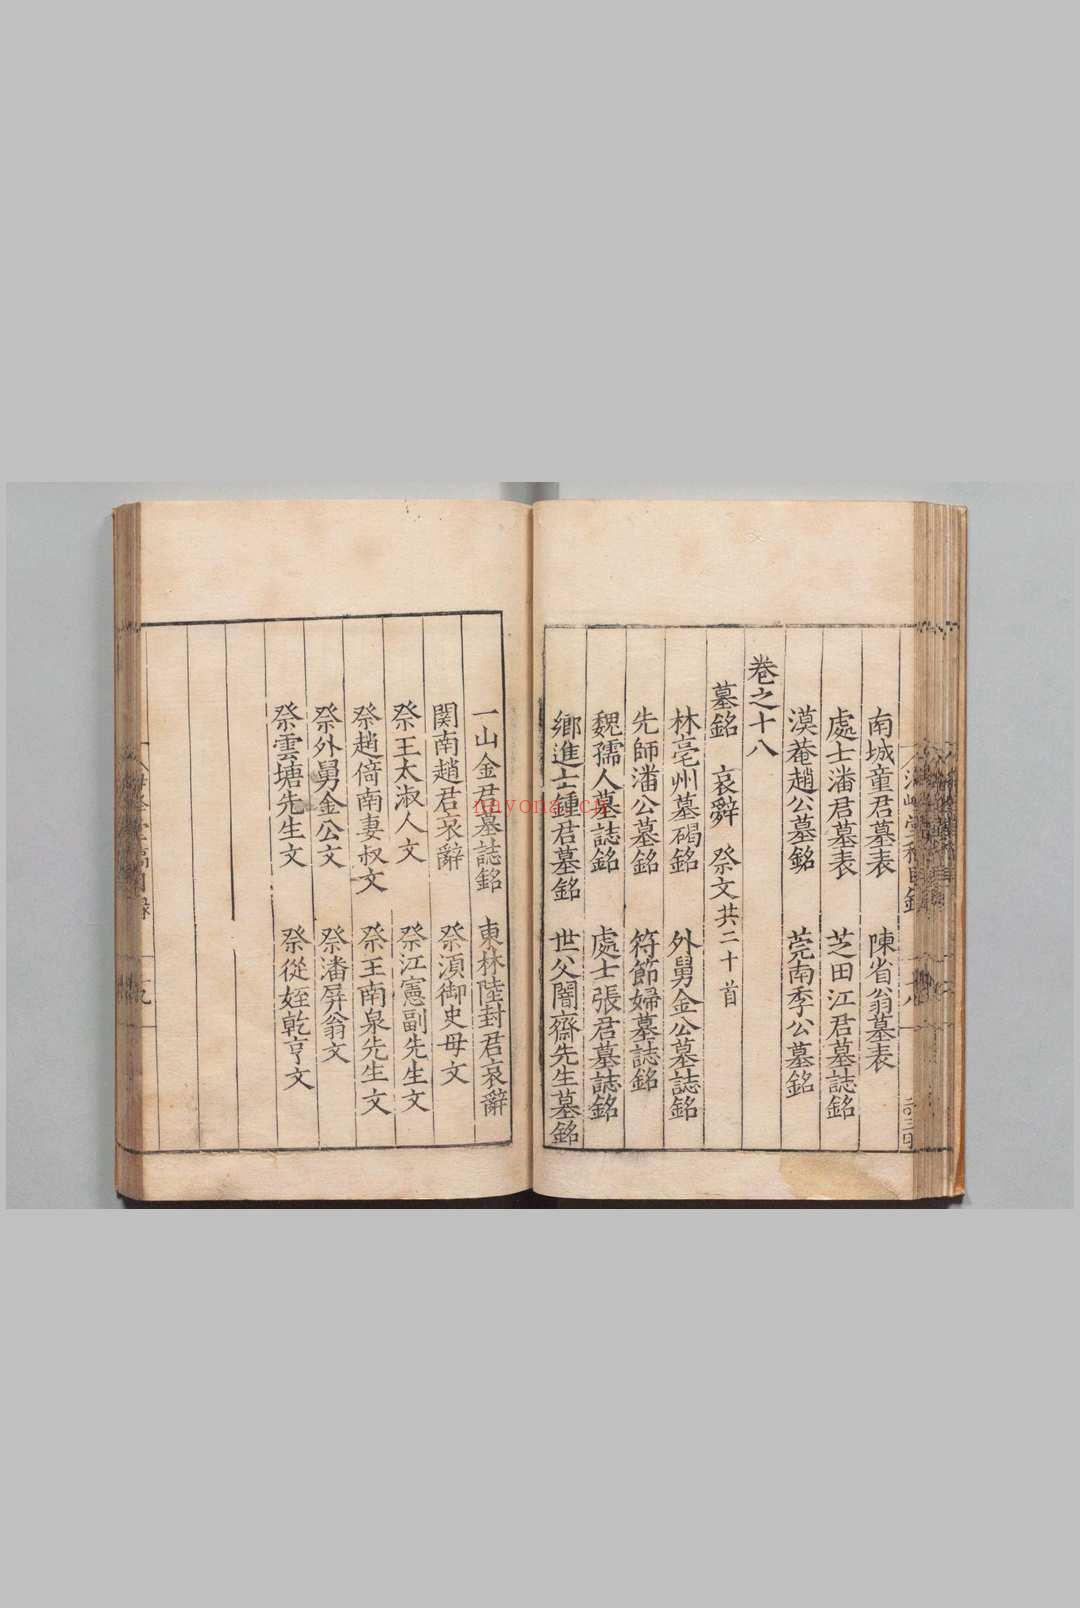 南城童君墓表　陳省翁墓表
處士潘君墓表　芝田江君墓誌銘
漠菴趙公墓銘　莞南季公墓銘
卷之十八
墓銘　哀辭　祭文共二十首
林亳州墓碣銘　外舅金公墓誌銘
先師潘公墓銘　符節婦墓誌銘
魏孺人墓誌銘　處士張君墓誌銘
鄉進士鍾君墓銘　世父闇齋先生墓銘
一山金君墓誌銘　東林陸封君哀辭
関南趙君哀辭　祭湏御史母文
祭王太淑人文　祭江憲副先生文
祭趙倚南妻叔文　祭王南泉先生文
祭外舅金公文　祭潘屏翁文
祭雲塘先生文　祭從姪乾亨文
navona.cn